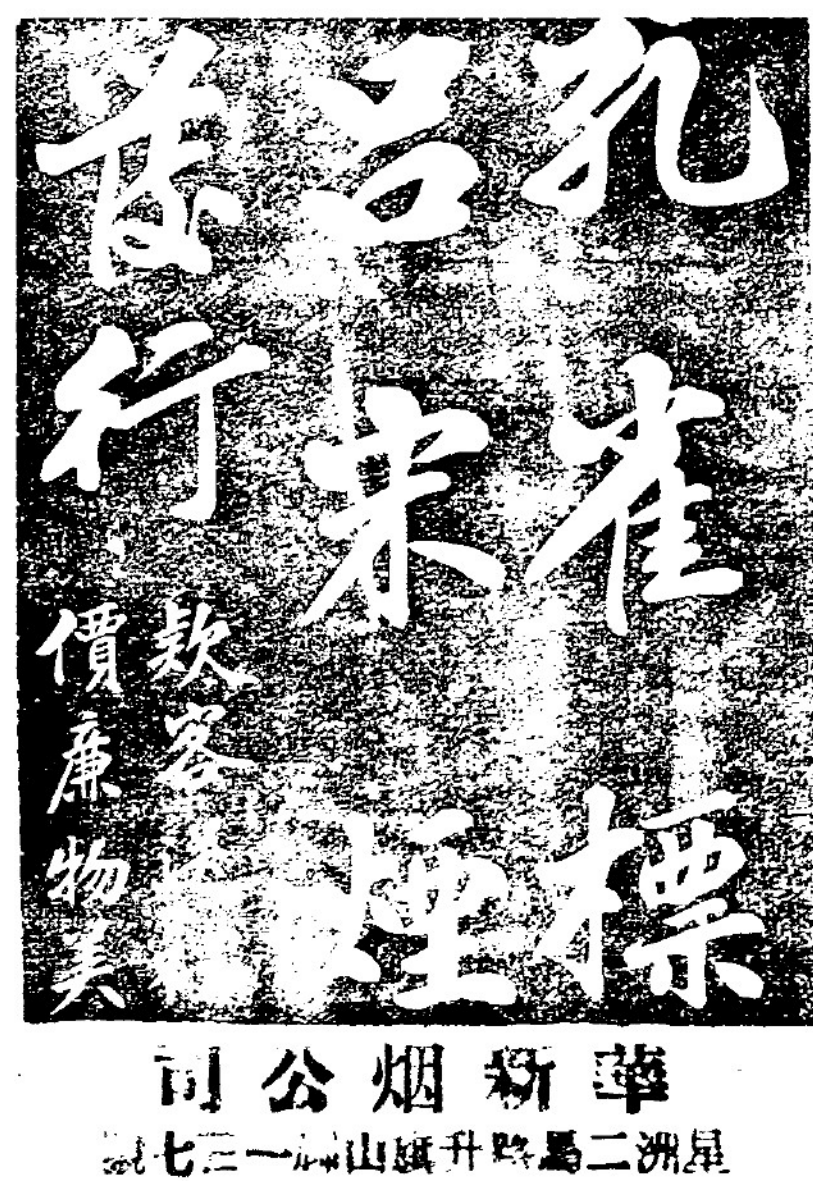 孔雀標
呂宋煙
發行
欵客
價廉物美
華新烟公司
星洲二馬路升旗山脚一三七號